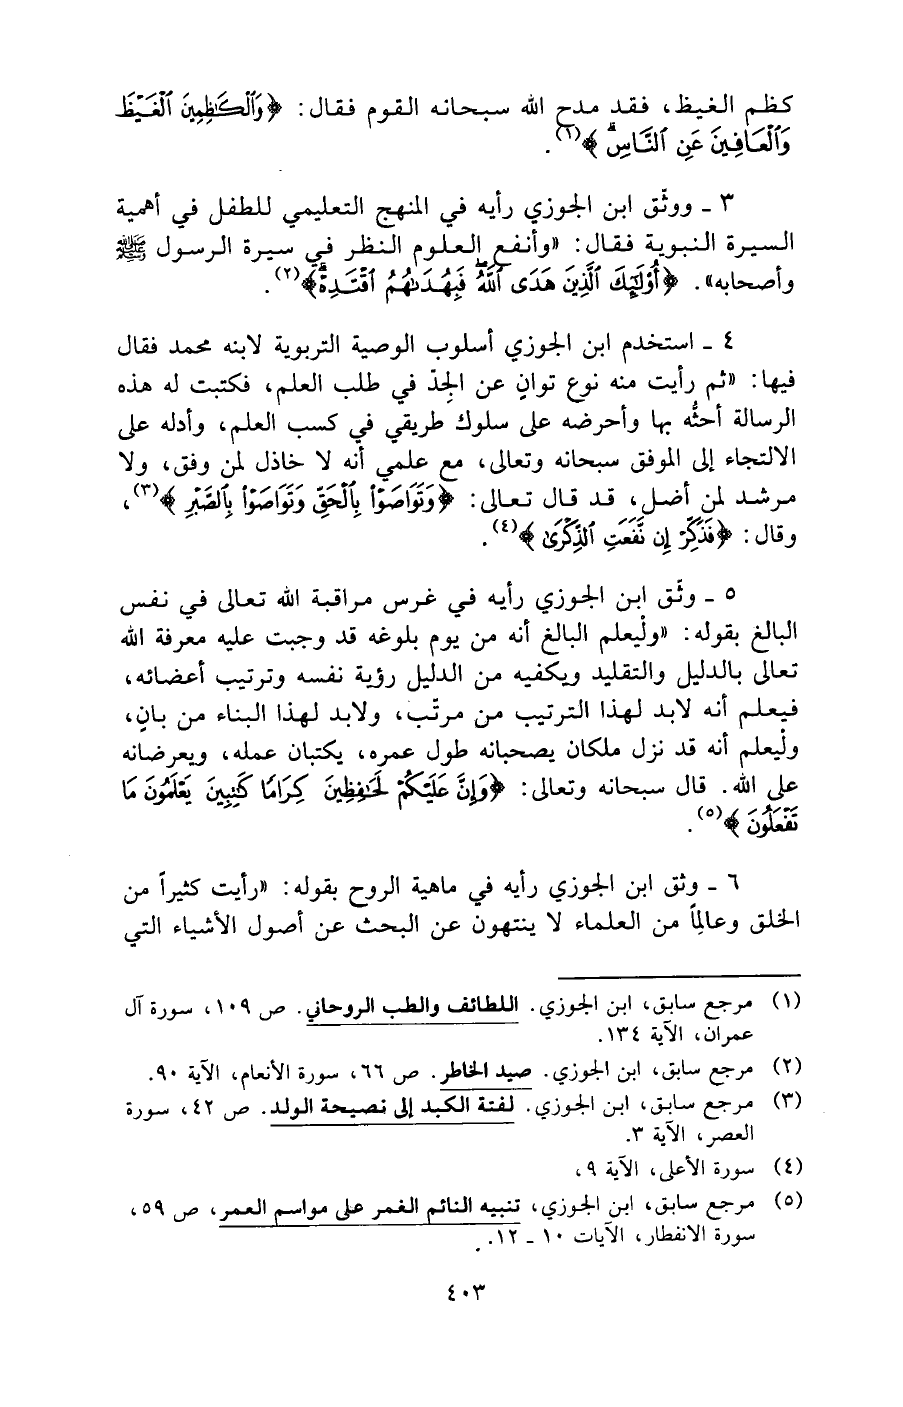 كظم الغيظ، فقد مدح الله سبحانه القوم فقال: ﴿وَٱلْكَٰظِمِينَ ٱلْغَيْظَ
وَٱلْعَافِينَ عَنِ ٱلنَّاسِۗ﴾(١).
٣ ـ ووثّق ابن الجوزي رأيه في المنهج التعليمي للطفل في أهمية
السيرة النبوية فقال: «وأنفع العلوم النظر في سيرة الرسول ﷺ
وأصحابه». ﴿أُوْلَٰٓئِكَ ٱلَّذِينَ هَدَى ٱللَّهُۖ فَبِهُدَىٰهُمُ ٱقْتَدِهْۗ﴾(٢).
٤ ـ استخدم ابن الجوزي أسلوب الوصية التربوية لابنه محمد فقال
فيها: «ثم رأيت منه نوع توانٍ عن الجِدّ في طلب العلم، فكتبت له هذه
الرسالة أحثُّه بها وأحرضه على سلوك طريقي في كسب العلم، وأدله على
الالتجاء إلى الموفق سبحانه وتعالى، مع علمي أنه لا خاذل لمن وفق، ولا
مرشد لمن أضل، قد قال تعالى: ﴿وَتَوَاصَوْاْ بِٱلْحَقِّ وَتَوَاصَوْاْ بِٱلصَّبْرِ﴾(٣)،
وقال: ﴿فَذَكِّرْ إِن نَّفَعَتِ ٱلذِّكْرَىٰ﴾(٤).
٥ ـ وثّق ابن الجوزي رأيه في غرس مراقبة الله تعالى في نفس
البالغ بقوله: «ولْيعلم البالغ أنه من يوم بلوغه قد وجبت عليه معرفة الله
تعالى بالدليل والتقليد ويكفيه من الدليل رؤية نفسه وترتيب أعضائه،
فيعلم أنه لابد لهذا الترتيب من مرتّب، ولابد لهذا البناء من بانٍ،
ولْيعلم أنه قد نزل ملكان يصحبانه طول عمره، يكتبان عمله، ويعرضانه
على الله. قال سبحانه وتعالى: ﴿وَإِنَّ عَلَيْكُمْ لَحَٰفِظِينَ كِرَامًا كَٰتِبِينَ يَعْلَمُونَ مَا
تَفْعَلُونَ﴾(٥).
٦ ـ وثق ابن الجوزي رأيه في ماهية الروح بقوله: «رأيت كثيراً من
الخلق وعالِماً من العلماء لا ينتهون عن البحث عن أصول الأشياء التي
(١) مرجع سابق، ابن الجوزي. اللطائف والطب الروحاني. ص ١٠٩، سورة آل
عمران، الآية ١٣٤.
(٢) مرجع سابق، ابن الجوزي. صيد الخاطر. ص ٦٦، سورة الأنعام، الآية ٩٠.
(٣) مرجع سابق، ابن الجوزي. لفتة الكبد إلى نصيحة الولد. ص ٤٢، سورة
العصر، الآية ٣.
(٤) سورة الأعلى، الآية ٩،
(٥) مرجع سابق، ابن الجوزي، تنبيه النائم الغمر على مواسم العمر، ص ٥٩،
سورة الانفطار، الآيات ١٠ ـ ١٢.
٤٠٣